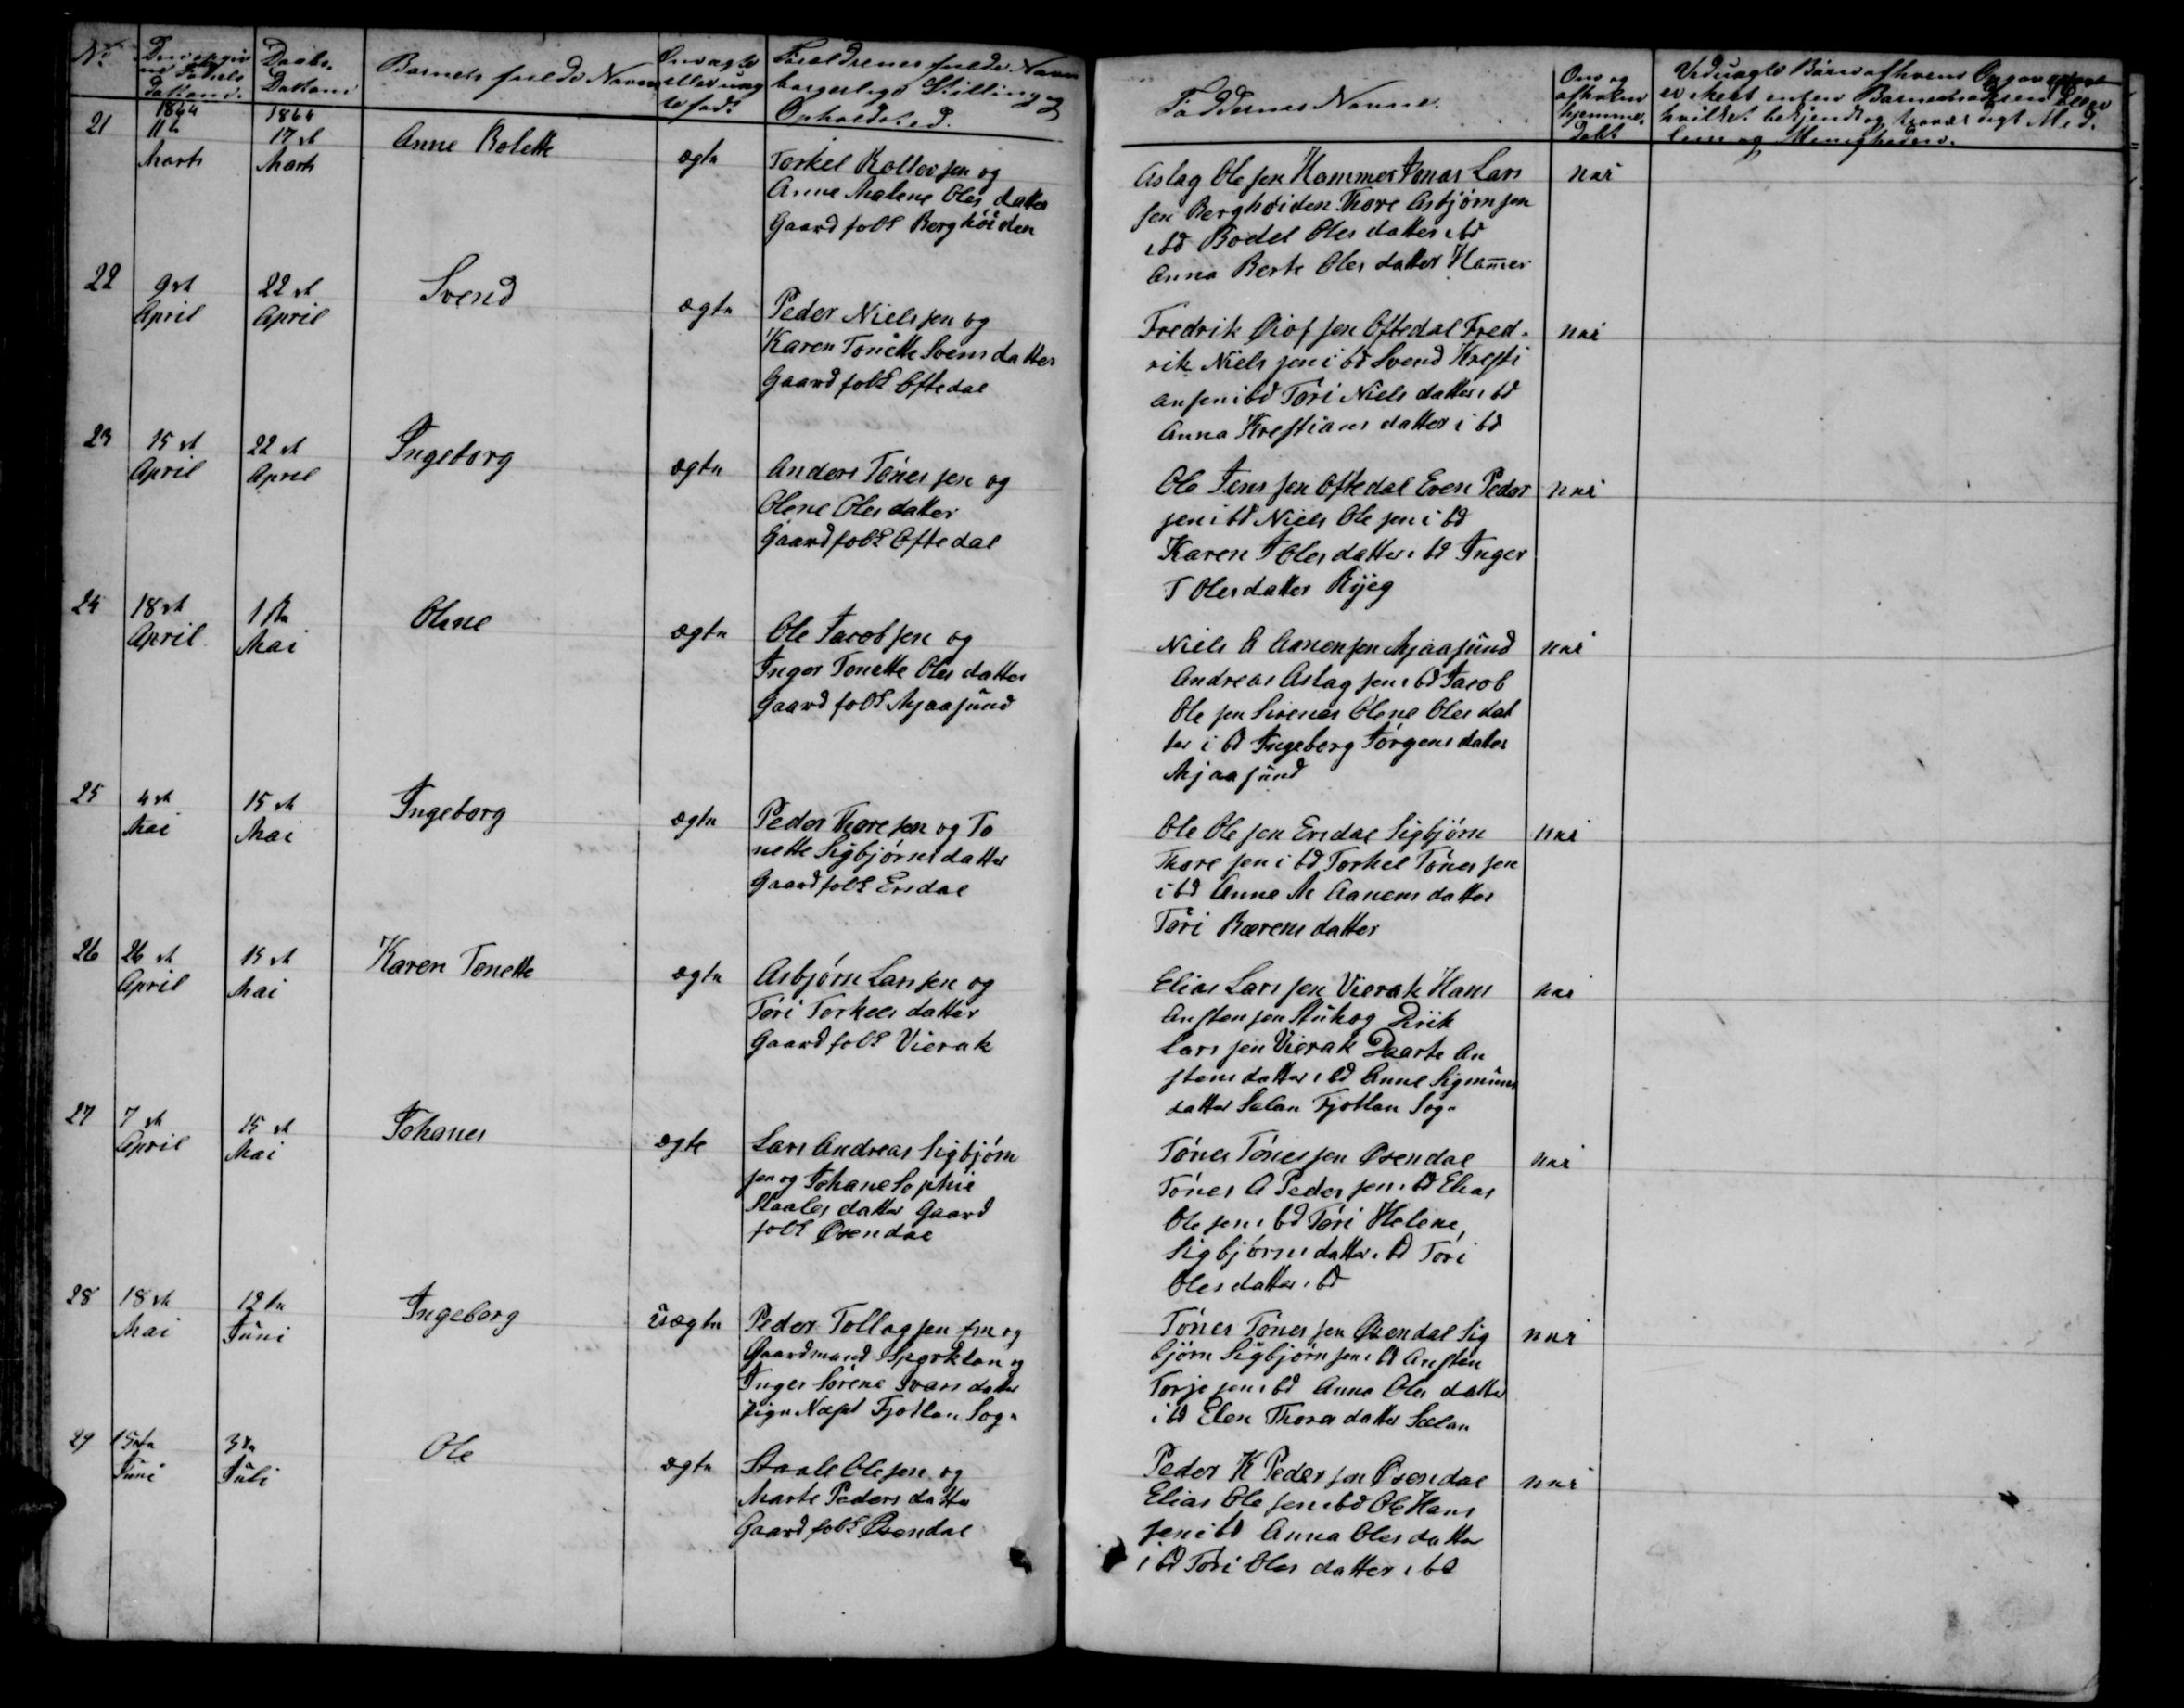 No
Daabs-
Datum
Barnets fulde Navn
Om ægte
eller uæg
te født
Forældrenes fulde Navn
borgerlige Stilling og
Opholdsted.
Faddernes Navne.
Om og
af hvem
hjemme-
døbt
21
1864
11te
Marts
1864
17de
Marts
Anne Bolette
ægte
Torkel Rollevsen og
Anne Malene Olesdatter
Gaardfolk Berghöiden
Aslag Olesen Hammer Jonas Lars
sen Berghöiden Thore Asbjörnsen
ibd Bodel Olesdatter ibd
Anna Berte Olesdatter Hamer
nei
22
9de
April
22de
April
Svend
ægte
Peder Nielsen og
Karen Tonette Svensdatter
Gaardfolk Oftedal
Fredrik Eiofsen Oftedal Fred-
rik Nielsen ibd Svend Kresti
ansen ibd Töri Nielsdatter ibd
Anna Krestiansdatter ibd
nei
23
15de
April
22de
April
Ingeborg
ægte
Anders Tönesen og
Olene Olesdatter
Gaardfolk Oftedal
Ole Jensen Oftedal Even Peder
sen ibd Niels Olesen ibd
Karen T Olesdatter ibd Inger
T Olesdatter Ryeg
nei
24
18de
April
1ste
Mai
Olene
ægte
Ole Jacobsen og
Inger Tonette Olesdatter
Gaardfolk Mjaasund
Niels A Aanensen Mjaasund
Andreas Aslagsen ibd Jacob
Olesen Sirenes Olene Olesdat
ter ibd Ingeborg Jörgensdatter
Mjaasund
nei
25
4de
Mai
15de
Mai
Ingeborg
ægte
Peder Thoresen og To
nette Sigbjörnsdatter
Gaardfolk Ersdal
Ole Olesen Ersdal Sigbjörn
Thoresen ibd Torkel Tönesen
ibd Anne M Aanensdatter
Töri Børensdatter
nei
26
26de
April
15de
Mai
Karen Tonette
ægte
Asbjörn Larsen og
Töri Torkelsdatter
Gaardfolk Vierak
Elias Larsen Vierak Hans
Anstensen Stuhog Dirik
Larsen Vierak Daarte An
stensdatter ibd Anne Sigmuns
datter Sælan Fjotlan Sogn
nei
27
7de
April
15de
Mai
Johanes
ægte
Lars Andreas Sigbjörn
sen og Johane Sophie
Staalesdatter Gaard
folk Øsendal
Tönes Tönesen Øsendal
Tönes A Pedersen ibd Elias
Olesen ibd Töri Helene
Sigbjörnsdatter ibd Töri
Olesdatter ibd
nei
28
18de
Mai
12te
Juni
Ingeborg
uægte
Peder Tollagsen Em og
Gaardmand Sparklan og
Inger Sörene Ivarsdatter
Pige Næset Fjotlan Sogn
Tönes Tönesen Øsendal Sig
björn Sigbjörnsen ibd Ansten
Torjesen ibd Anna Olesdatter
ibd Elen Thoresdatter Sælan
nei
29
15nde
Juni
3die
Juli
Ole
ægte
Staale Olesen og
Marte Pedersdatter
Gaardfolk Øsendal
Peder K Pedersen Øsendal
Elias Olesen ibd Ole Hans
sen ibd Anna Olesdatter
ibd Töri Olesdatter ibd
nei